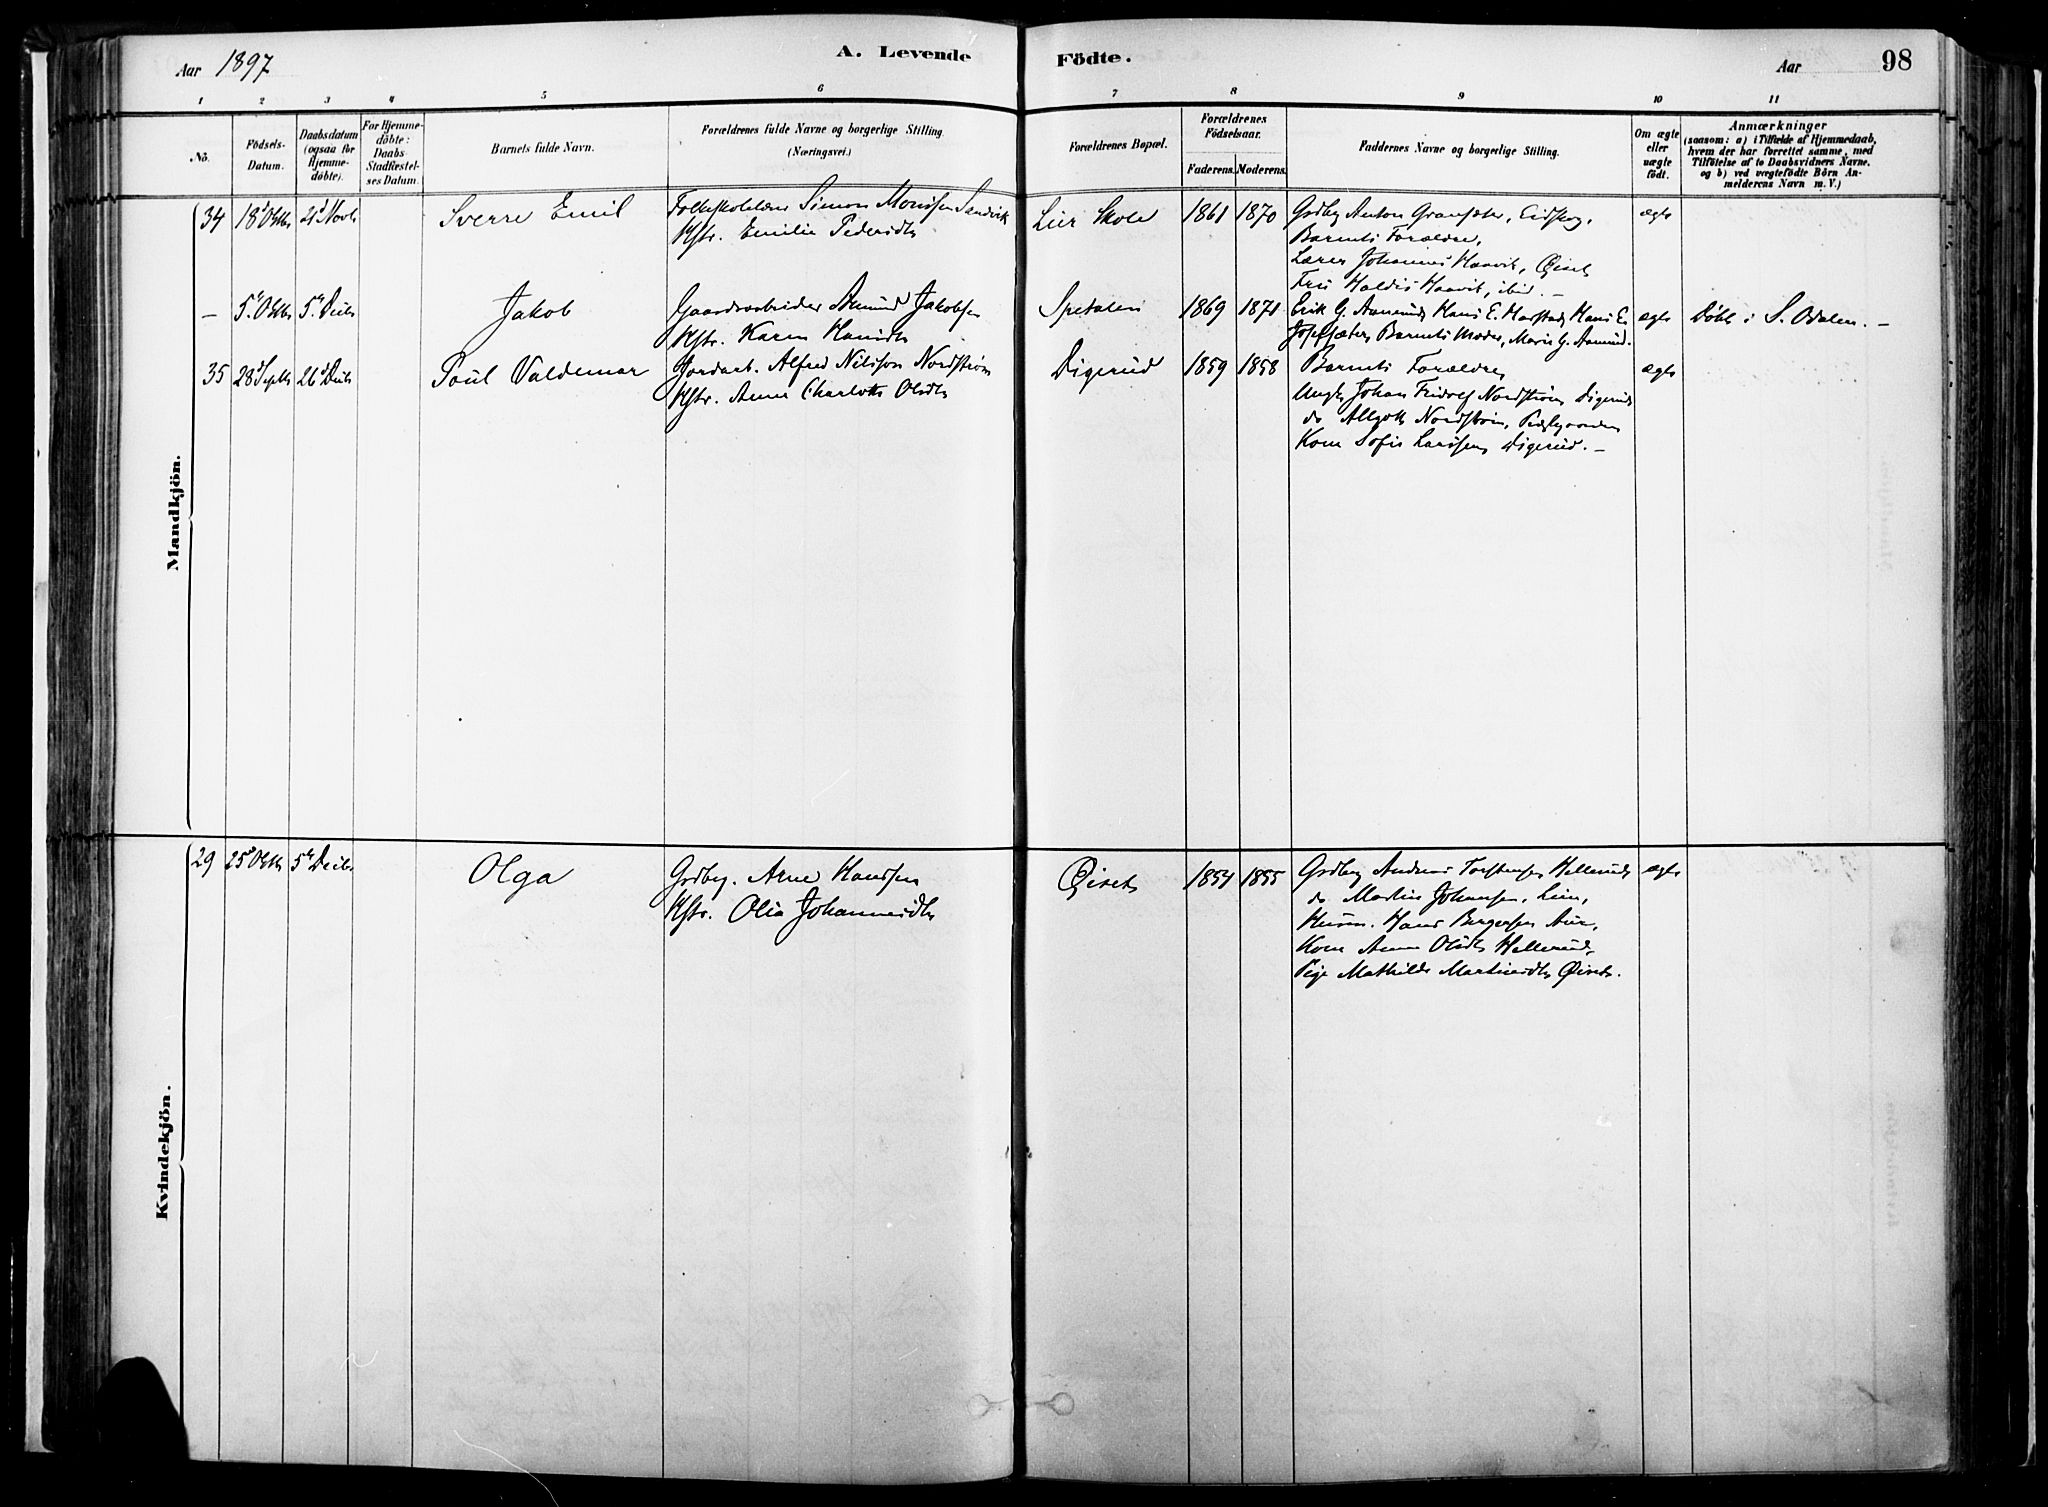 Aar 1897
A. Levende
Födte.
Aar
98
1 2 3 4 5 6 7 8 9 10 11
No.
Födsels-
Datum.
Daabsdatum
(ogsaa for
Hjemme-
döbte).
For Hjemme-
döbte:
Daabs
Stadfæstel-
ses Datum.
Barnets fulde Navn.
Forældrenes fulde Navne og borgerlige Stilling.
(Næringsvei.)
Forældrenes Bopæl.
Forældrenes
Födselsaar.
Faderens. Moderens.
Faddernes Navne og borgerlige Stilling.
Om ægte
eller
uægte
födt.
Anmærkninger
(saasom: a) i Tilfælde af Hjemmedaab,
hvem der har forrettet samme, med
Tilföielse af to Daabsvidners Navne.
og b) ved uægtefödte Börn An-
melderens Navn m. V.)
Mandkjön.
34 18d Oktb 21d Novb Sverre Emil
Simon Monsen Sandvik
Kstr. Emilie Pedersdtr
Lier Skole 1861 1870
Grdbg Anton Gransæter, Eidskog,
Barnets Forældre,
Lærer Johannes Haavik, Øiset
Haldis Haavik, ibid. —
ægte
— 5te Oktb 5te Decb Jakob
Gaardsarbeider Amund Jakobsen
Kstr. Karen Hansdtr
Spetalen 1869 1871
Erik G. Aamund, Hans E. Harstad, Hans E.
Barnets Moder, Marie G. Aamund.
ægte
Döbt i S. Odalen. —
35 28d Septb 26d Decb Paul Valdemar
Jordarb. Alfred Nilsson Nordström
Kstr. Anna Charlotte Olsdtr
Digerud 1859 1858
Barnets Forældre,
Ungk. Johan Fridolf Nordström, Digerud
do Allgott Nordström,
Kone Sofie Larssen, Digerud. —
ægte
Kvindekjön.
29 25d Oktb 5te Decb Olga
Grdbg. Arne Hansen
Kstr. Olia Johannesdtr
Øiset 1854 1855
Grdbg Andreas Torstensen Hellerud
do Martin Johansen, Lier,
Husm. Hans Bergersen Aur,
Kone Anne Olsdtr Hellerud,
Pige Mathilde Martinsdtr Øiset.
ægte